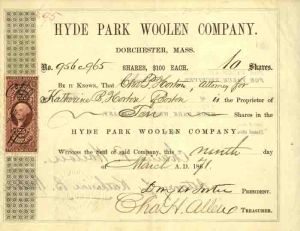 95
HYDE PARK WOOLEN COMPANY.
DORCHESTER, MASS.
No. 956 @ 965 SHARES, $100 EACH. 10 Shares.
BE IT KNOWN, That Chas P. Horton, Attorney for
Katharine B. Horton, Boston is the Proprietor of
Ten Shares in the
HYDE PARK WOOLEN COMPANY.
Witness the seal of said Company, this ninth
day of March A.D. 1871
PRESIDENT.
Chas. H. Allen TREASURER.